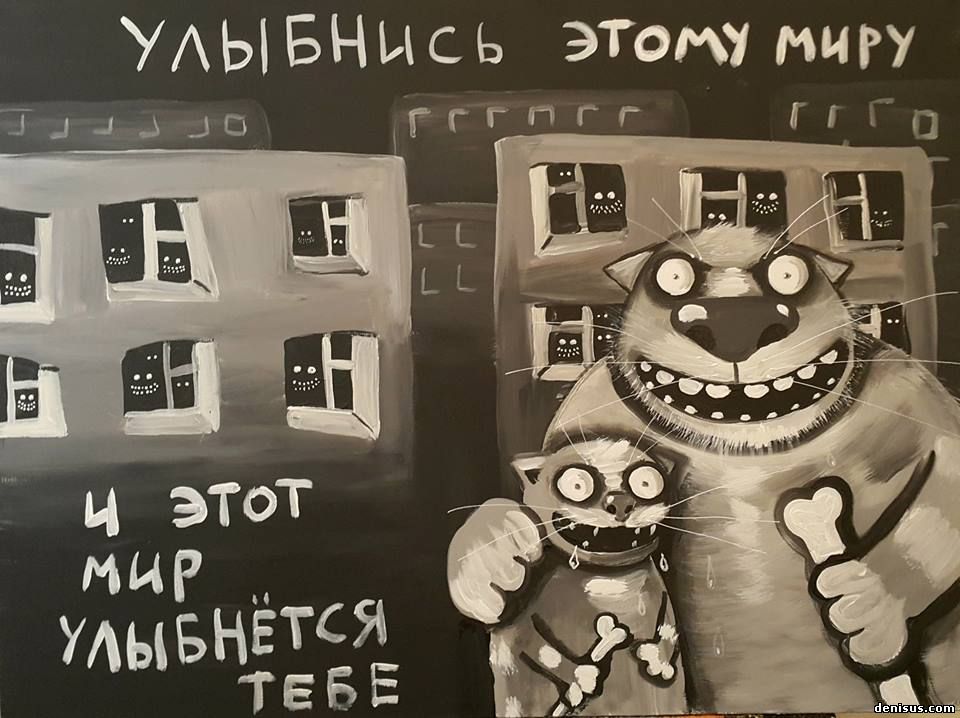 УЛЫБНИСЬ ЭТОМУ МИРУ
И ЭТОТ
МИР
УЛЫБНЁТСЯ
ТЕБЕ
denisus.com